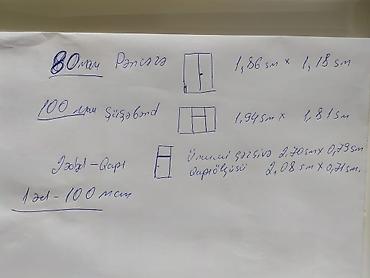 80 mm Pəncərə 1,86 sm × 1,18 sm
100 mm Şüşəbənd 1,94 sm × 1,81 sm
Ümumi çərçivə 2.70 sm × 0,79 sm
Qapı 
Qapı ölçüsü 2,08 sm × 0,71 sm.
1 əd - 100 mm